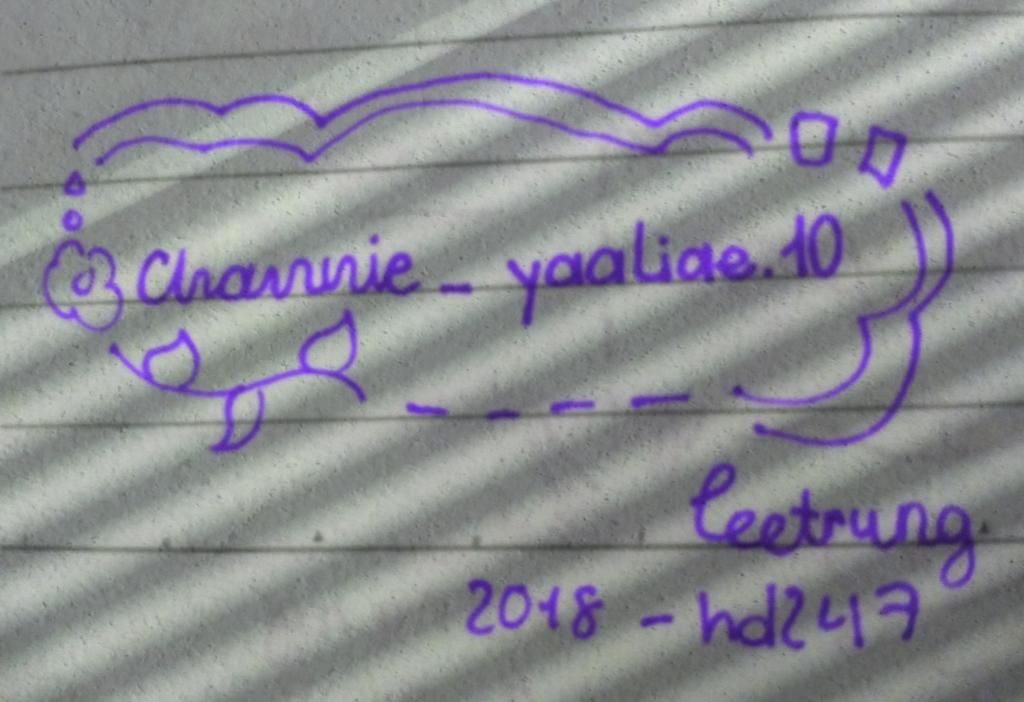 Channnie_yaaliae.10
leetrung
2018 - hd247